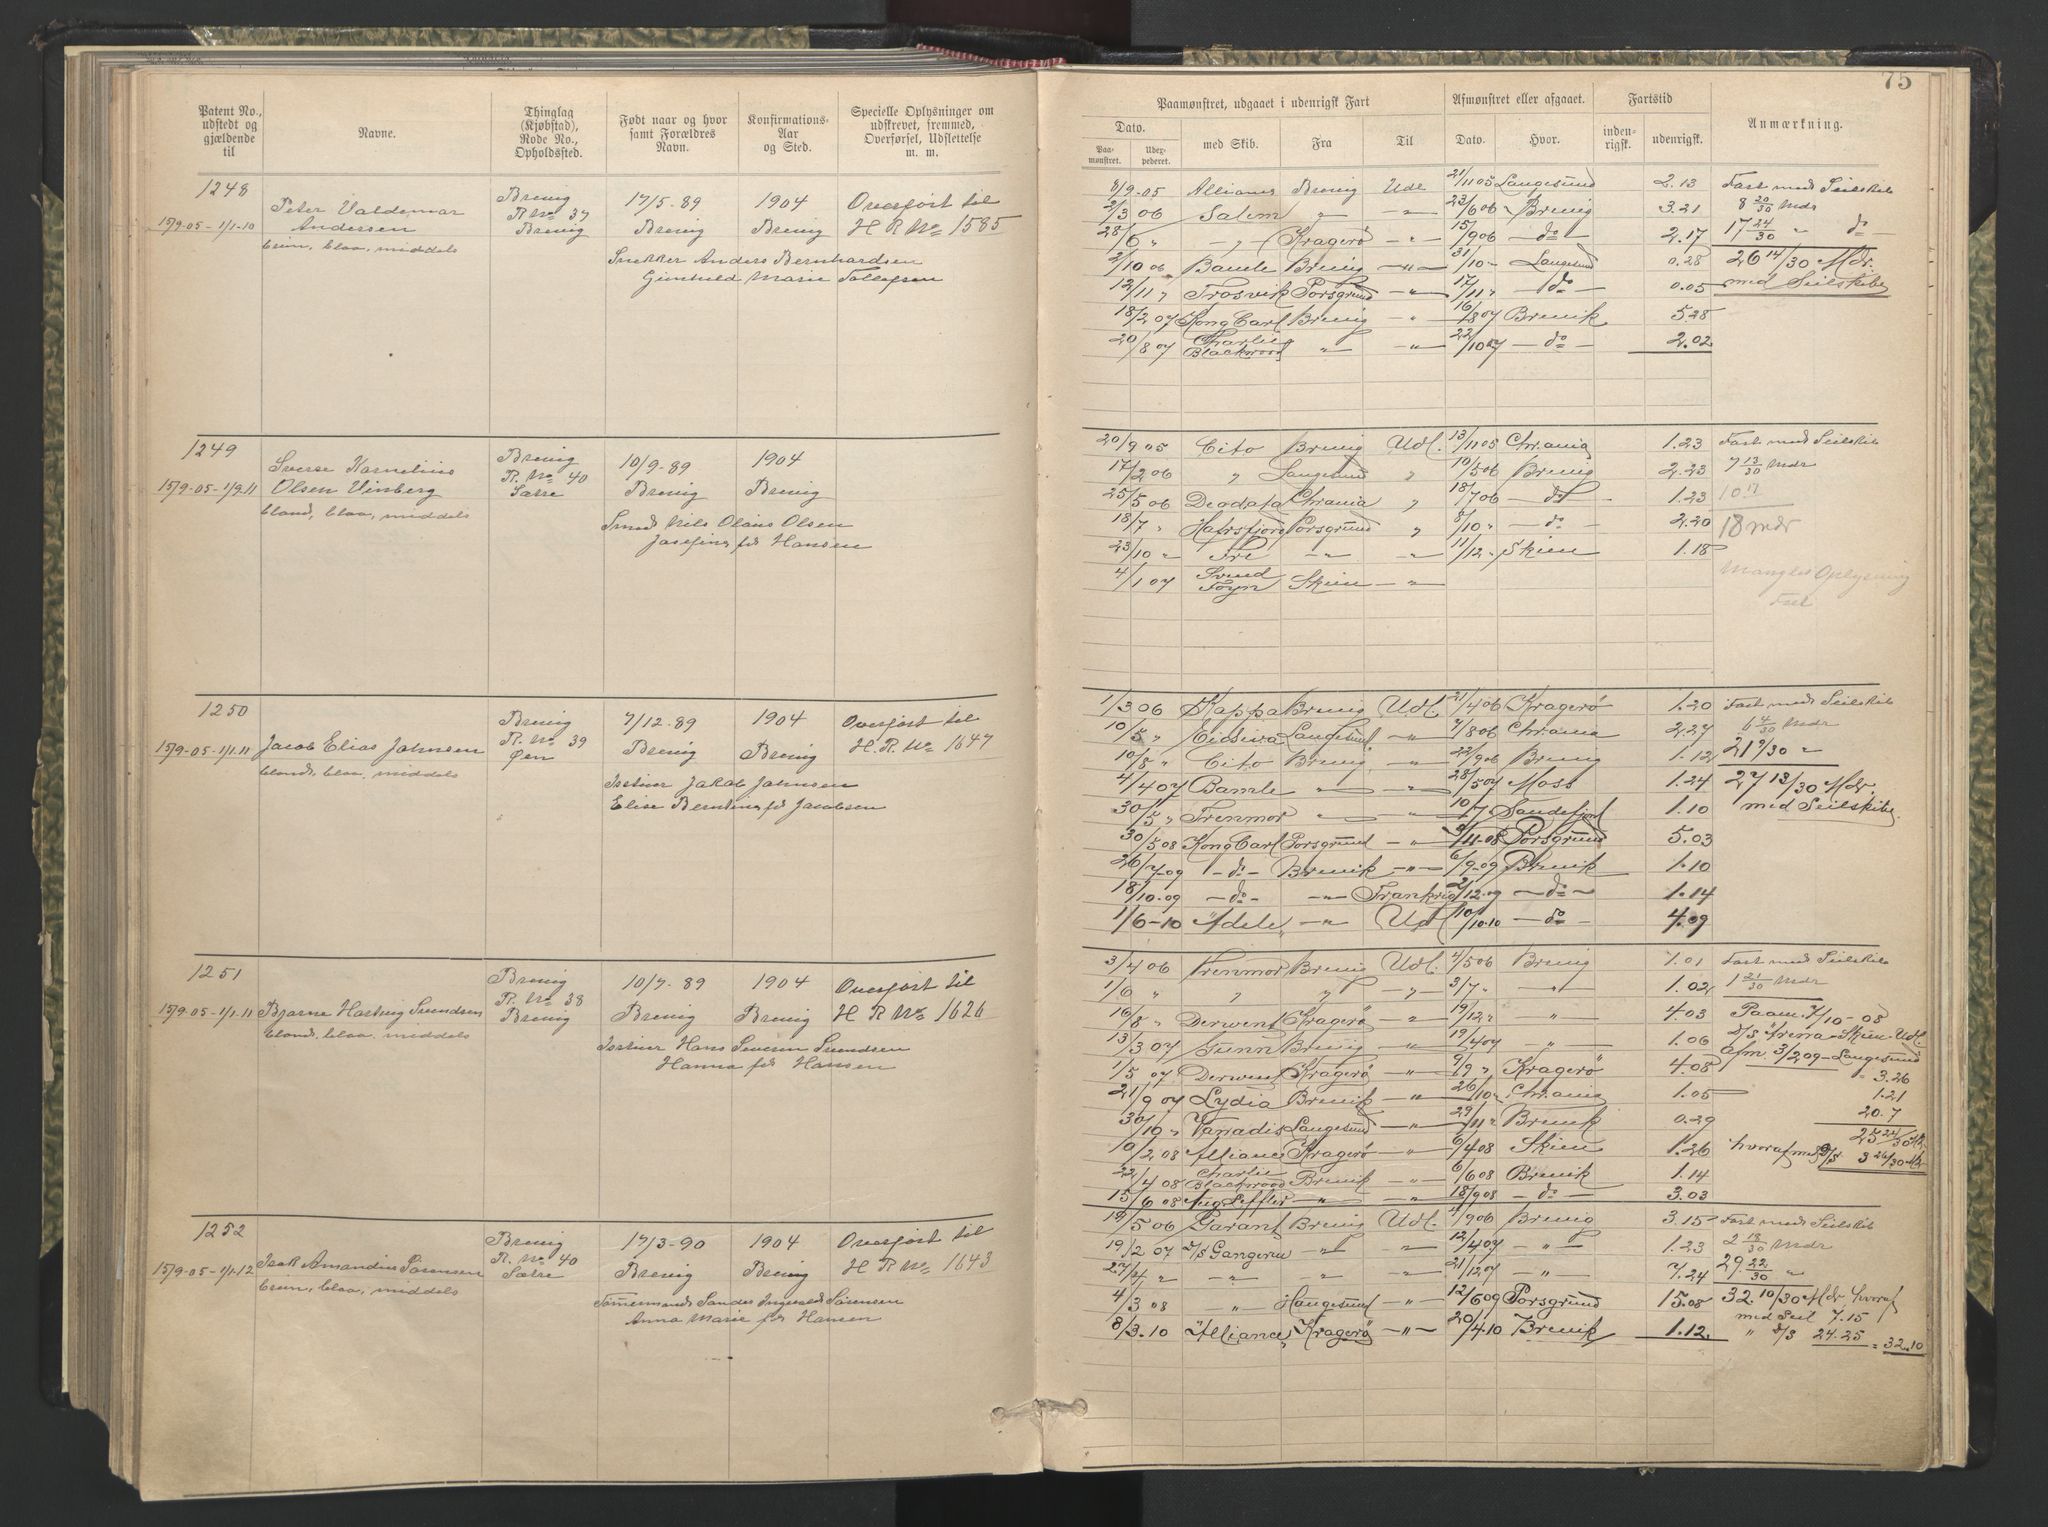 75
Patent No., udstedt og gjældende til
Navne.
Thinglag (Kjøbstad), Rode No., Opholdssted.
Født naar og hvor samt Forældres Navn.
Konfirmations-Aar og Sted.
Specielle Oplysninger om udskrevet, fremmed, Overførsel, Udslettelse m. m.
Paamønstret, udgaaet i udenrigsk Fart
Afmønstret eller afgaaet.
Fartstid
Anmærkning.
Dato.
Paa-mønstret.
Udex-pederet.
med Skib.
Fra
Til
Dato.
Hvor.
inden-rigsk.
udenrigsk.
1248
15/9-05-1/1-10
Peter Valdemar
Andersen
brun, blaa, middels
Brevig
R. No 37
Brevig
17/5-89
Brevig
1904
Brevig
Overført til
H R No 1585
Snekker Anders Bernhardsen
Gunhild Marie Tollefsen
8/9-05 Alliance Brevig Udl 21/11 05 Langesund 2.13 Fart med Seilskib
2/3 06 Salem " -"- 23/6 06 Brevig 3.21 8 20/30 Mdr
28/6 " -"- Kragerö -"- 15/9 06 -do- 2.17 17 24/30 " do-
2/10 06 Bamle Brevig -"- 31/10 - Langesund 0.28 26 14/30 Mdr.
12/11 " Frosvik Porsgrund -"- 17/11 " -do- 0.05 med Seilskibe
18/2 07 Kong Carl Brevig - " 16/8 07 Brevik 5.28
20/8 07 Charlie Blackwood " -"- 22/10 07 -do- 2.02
1249
15/9-05-1/9.11
Sverse Kornelius
Olsen Vinberg
blond, blaa, middels
Brevig
R. No 40
Sætre
10/9-89
Brevig
1904
Brevig
Smed Nils Olaus Olsen
Josefine fd Hansen
20/9 05 Cito Brevig Udl. 13/11 05 Chr.ania 1.23 Fart med Seilskib
17/2 06 " Langesund " 10/5 06 Brevig 2.23 7 13/30 Mdr
25/5 06 Deodata Chr.ania " 18/7 06 -do- 1.23 10.17
18/7 " Hafrsfjord Porsgrund " 8/10 " -do- 2.20 18 mdr
23/10 " Fre -"- " 11/12 " Skien 1.18
4/1 07 Svend Foyn Skien -"
Mangler Oplysning
1250
15/9-05-1/1.11
Jacob Elias Johnsen
blond, blaa, middels
Brevig
R. No 39
Øen
7/12-89
Brevig
1904
Brevig
Overført til
H. R. No 1647
Istner Jakob Johnsen
Elise Berntine fd Jacobsen
1/3 06 Kappa Brevig Udl. 21/4 06 Kragerö 1.20 Fart med Seilskib
10/5 " Eidsiva Langesund -"- 7/8 06 Chr.ania 2.27 6 4/30 Mdr
10/8 " Cito Brevig " 22/9 06 Brevig 1.12 21 9/30 "
4/4 07 Bamle -"- -"- 28/5 07 Moss 1.24 27 13/30 Mdr.
30/5 " Frenmor -"- -"- 10/7 Sandefjord 1.10 med Seilskibe
30/5 08 Kong Carl Porsgrund -"- 3/11-08 Porsgrund 5.03
26/7-09 -do- Brevik -"- 6/9-09 Brevik 1.10
18/10-09 -do- -"- Frankrig 2/12-09 -do- 1.14
1/6-10 "Adele" -"- Udl 10/10-10 -do- 4.09
1251
15/9-05-1/1.11
Bjarne Hartvig Svendsen
blond, blaa, middels
Brevig
R. No 38
Brevig
10/7-89
Brevig
1904
Brevig
Overført til
H R No 1626
Istner Hans Severin Svendsen
Hanna fd Hansen
3/4 06 Frenmor Brevig Udl. 4/5 06 Brevig 1.01 Fart med Seilskib
1/6 " " " -"- 3/7 " -"- 1.02 1 21/30 Mdr
16/8 " Derwent Kragerö -"- 19/12 " -"- 4.03 Paam. 7/10-08
13/3 07 Gunn Brevig -"- 19/4 07 -"- 1.06 D/S Arena-Skien-Udl.
1/5 07 Derwent Kragerö -"- 9/9 " Kragerö 4.08 Afm. 3/2 09-Langesund
= 3.26
21/9 07 Lydia Brevik -"- 26/10 " Chr.ania 1.05 1.21
30/10 " Vanadis Langesund -"- 29/11 " Brevik 0.29 20.7
25 24/30 M.
10/2 08 Alliance Kragerö -"- 6/4 08 Skien 1.26 hvoraf med D/S 3 26/30 M.
22/4 08 Charlie Blackwood Brevik -"- 6/6 08 Brevik 1.14
15/6 08 Aug. Leffler -"- -"- 18/9 08 -do- 3.03
1252
15/9-05-1/1.12
Isak Amandius Sörensen
brun, blaa, middels
Brevig
R. No 40
Sætre
17/3-90
Brevig
1904
Brevig
Overført til
H R No 1643
Tømmermand Sander Ingvald Sörensen
Anna Marie fd Hansen
19/5 06 Garant Brevig Udl. 4/9 06 Brevig 3.15 Fart med Seilskib
19/2 07 D/S Gangerrolf -"- -"- 12/4 07 -"- 1.23 2 18/30 Mdr
27/4 " -"- -"- -"- 21/12 07 -"- 7.24 29 22/30 "
4/3 08 " Haugesund -"- 12/6 09 Porsgrund 15.08 32 10/30 Mdr hvoraf
med Seil 7.15
8/3.10 "Alliance" Kragerö -"- 20/4.10 Brevik 1.12 " D/S 24.25 = 32.10